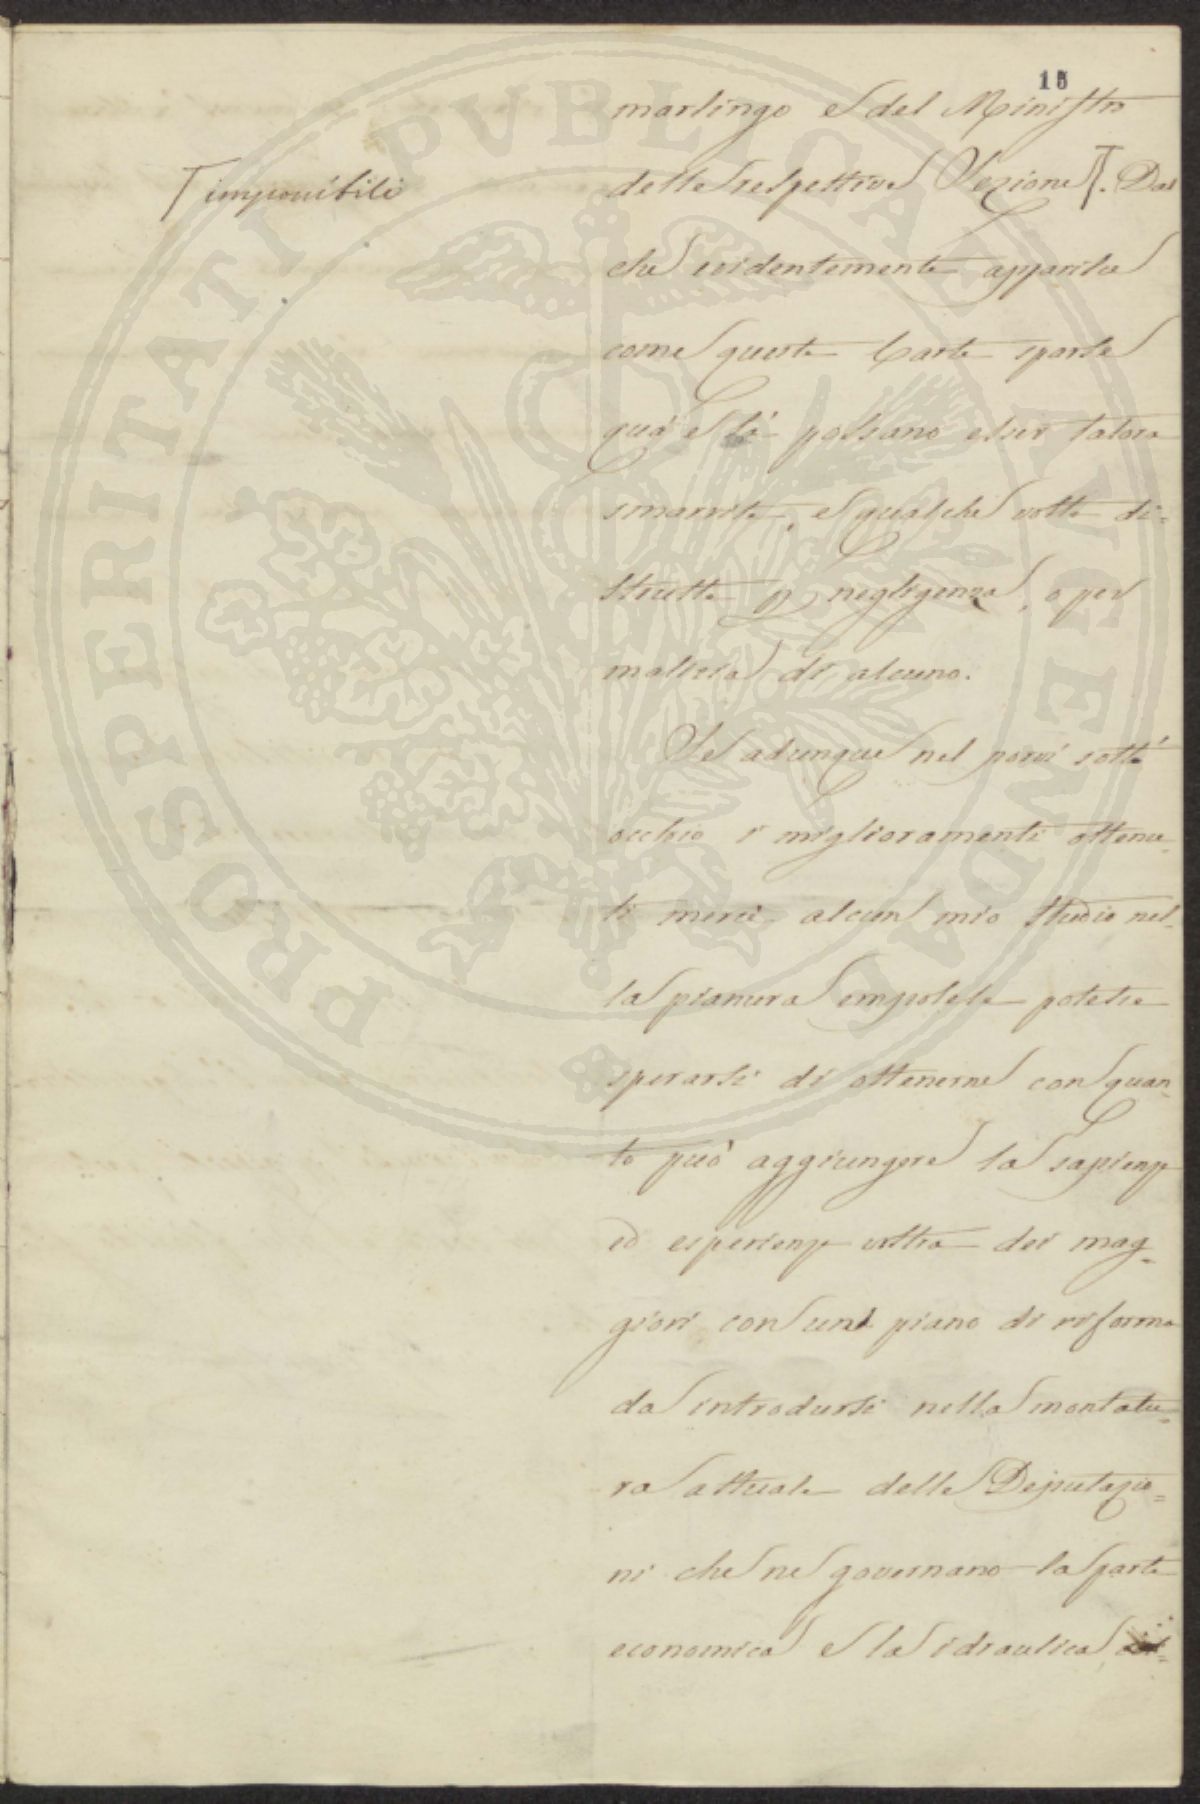 15
marlingo e del Ministro
delle respettive Sezione. Dal
imponibili
che evidentemente apparisce
come queste Carte sparse
quà e là possano esser talora
smarrite, e qualche volta di=
strutte p negligenza, o per
malizia di alcuno.
Se adunque nel porvi sott'
occhio i miglioramenti ottenu=
ti mercè alcun mio studio nel=
la pianura empolese potesse
sperarsi di ottenerne con quan=
to può aggiungere la sapienza
ed esperienza vostra dei mag=
giori con un piano di riforma
da introdursi nella montatu=
ra attuale delle Deputazio=
ni che ne governano la parte
economica e la idraulica
PROSPERITATI PVBLICAE AVGENDAE